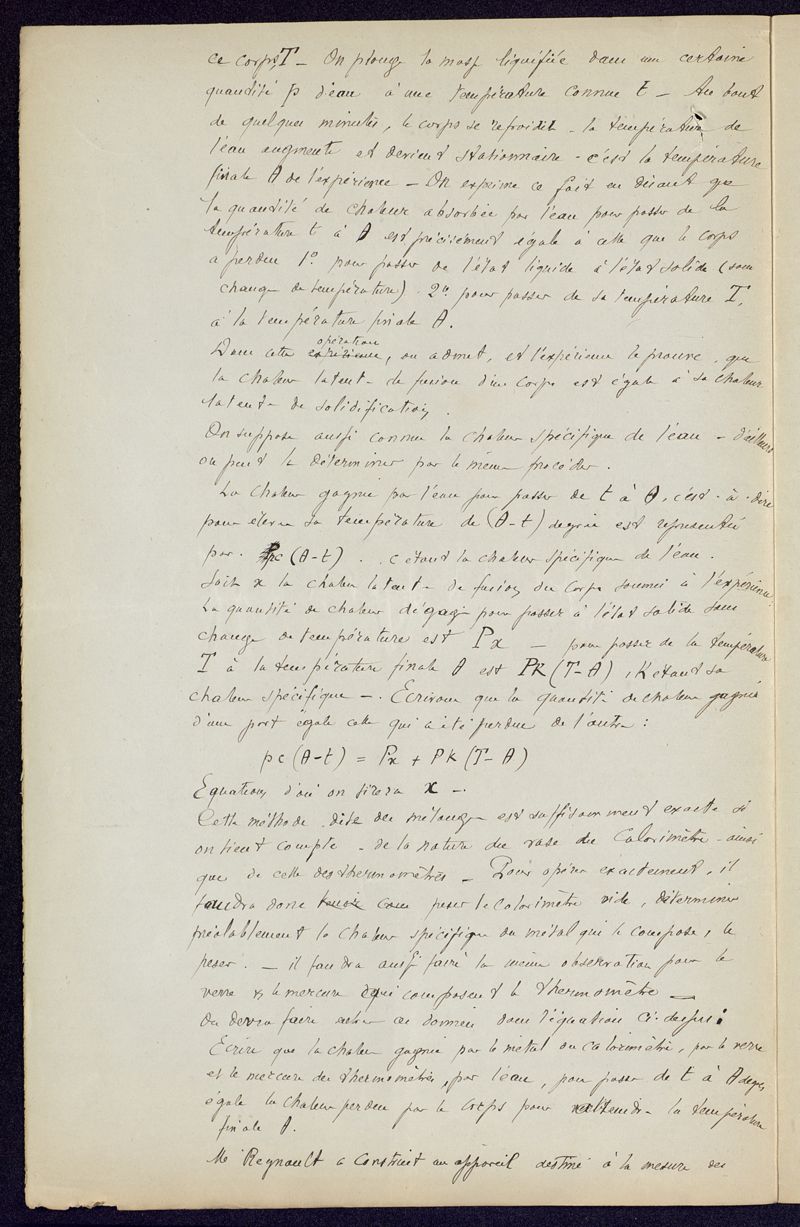 ce corps T - On plonge la masse liquifiée dans une certaine
quantité p d'eau à une température connue t - Au bout
de quelques minutes, le corps se refroidit - la température de
l'eau augmente et devient stationnaire - c'est la température
finale θ de l'expérience - On exprime ce fait en disant que
la quantité de chaleur absorbée par l'eau pour passer de la
température t à θ est précisément égale à celle que le corps
a perdue 1° pour passer de l'état liquide à l'état solide (sans
change de température). 2° pour passer de sa température T,
à la température finale θ.
Dans cette opération, on admet, et l'expérience le prouve, que
la chaleur latente de fusion d'un corps est égale à sa chaleur
latente de solidification.
On suppose aussi connue la chaleur spécifique de l'eau - d'ailleurs
on peut la déterminer par le même procédé.
La chaleur gagnée par l'eau pour passer de t à θ, c'est-à-dire
pour élever sa température de (θ-t) degrés est représentée
par pc (θ-t) . c étant la chaleur spécifique de l'eau.
Soit x la chaleur latente de fusion du corps soumis à l'expérience.
La quantité de chaleur dégagée pour passer à l'état solide sans
change de température est Px - pour passer de la température
T à la température finale θ est PK (T-θ), K étant sa
chaleur spécifique -. Ecrivons que la quantité de chaleur gagnée
d'une part égale celle qui a été perdue de l'autre :
pc (θ-t) = Px + PK (T-θ)
Equation d'où on tirera x -.
Cette méthode dite des mélanges est suffisamment exacte si
on tient compte de la nature du vase du Calorimètre ainsi
que de celle des thermomètres - Pour opérer exactement, il
faudra donc peser le calorimètre vide, déterminer
préalablement la chaleur spécifique du métal qui le compose, le
peser. - il faudra aussi faire la même observation pour le
verre & le mercure qui composent le thermomètre -
On devra faire entrer ces données dans l'équation ci-dessus :
Ecrire que la chaleur gagnée par le métal du calorimètre, par le verre
et le mercure des thermomètres, par l'eau, pour passer de t à θ degrés
égale la chaleur perdue par le corps pour atteindre la température
finale θ.
Mr Regnault a construit un appareil destiné à la mesure des